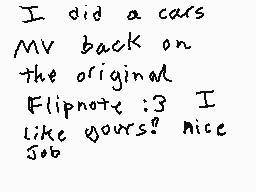 I did a cars
MV back on
the original
Flipnote :3 I
like yours! nice
Job